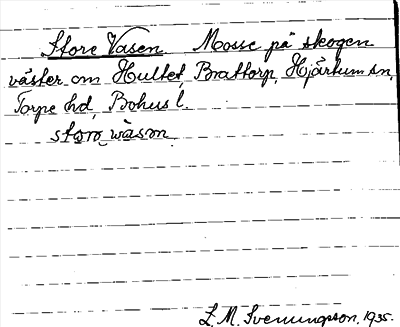 Store Vasen Mosse på skogen
väster om Hultet, Brattorp, Hjärtum sn,
Torpe hd, Bohusl.
storo wàsơn.
L. M. Svenungsson. 1935.